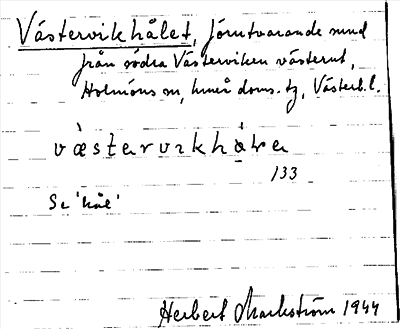 Västervikhålet, förutvarande sund
från södra Västerviken västerut,
Holmöns sn, Umeå doms. tg, Västerb. l.
västervikhåla
133
Se 'hål'
Herbert Markström 1944